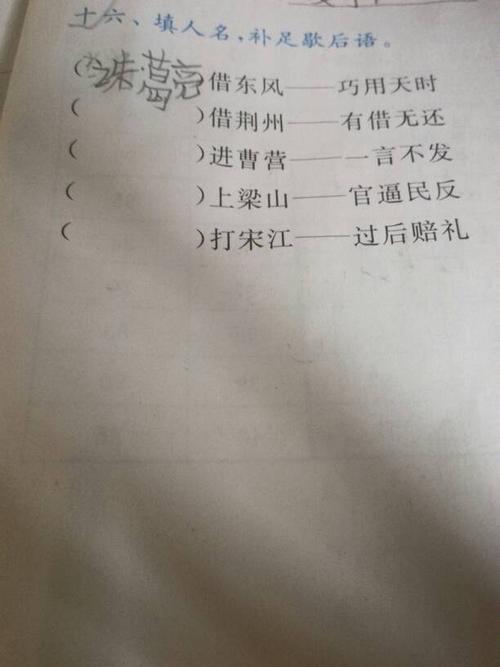 十六、填人名,补足歇后语。
(诛葛亮)借东风——巧用天时
( )借荆州——有借无还
( )进曹营——一言不发
( )上梁山——官逼民反
( )打宋江——过后赔礼